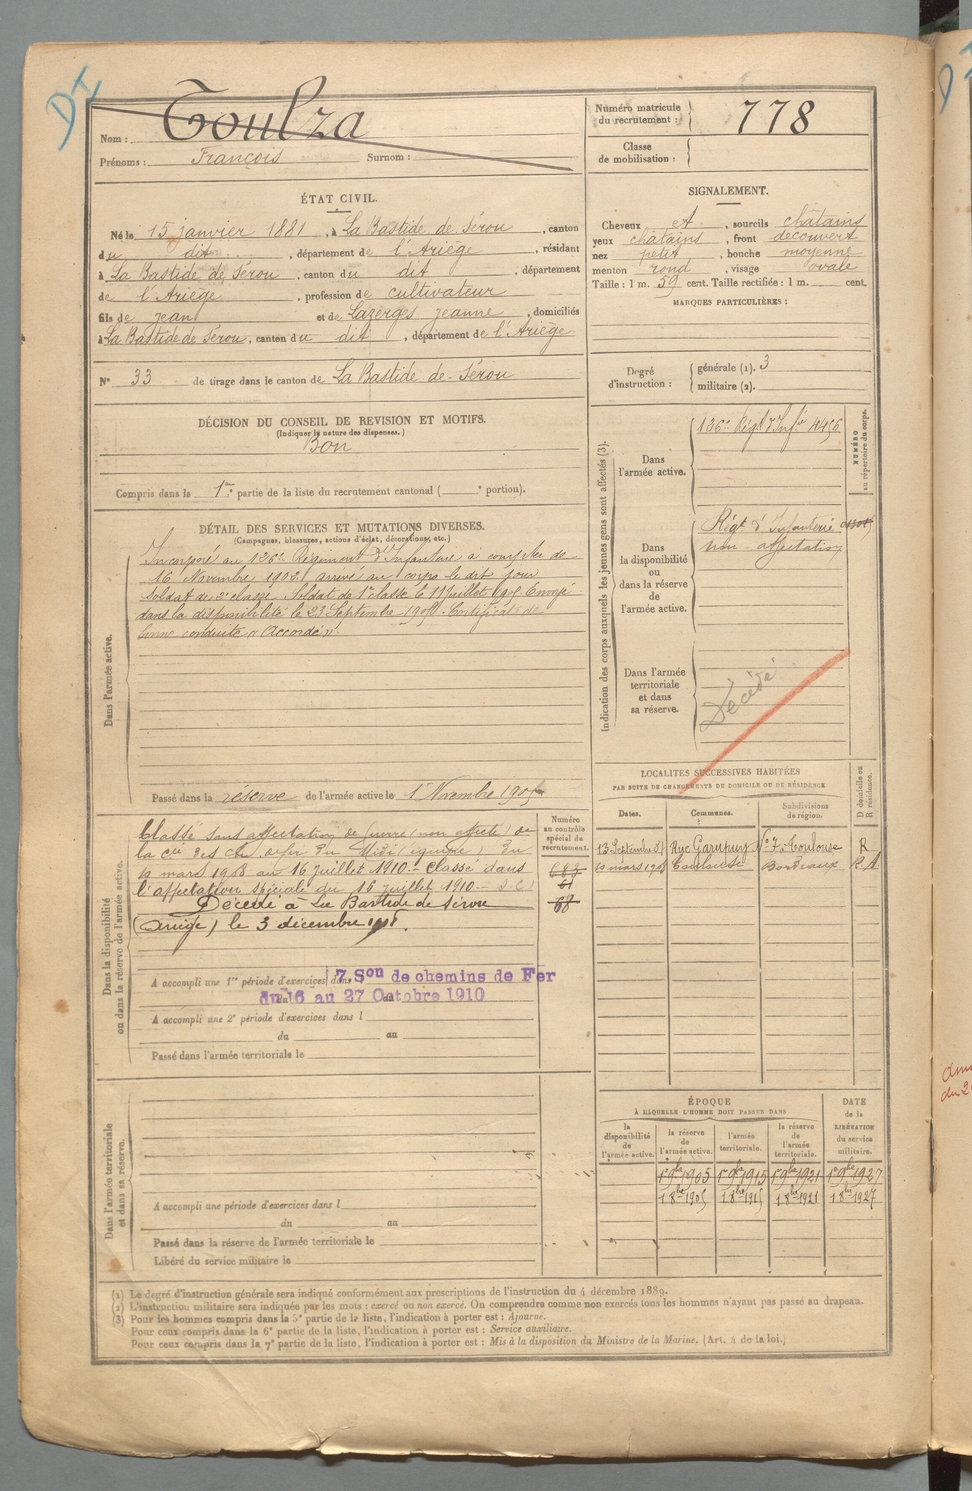 DI
Nom : Toulza
Prénoms : François Surnom :
Numéro matricule du recrutement : 778
Classe de mobilisation :
ÉTAT CIVIL.
Né le 15 janvier 1881, à La Bastide de Sérou, canton
du dit, département de l'Ariège, résidant
à La Bastide de Sérou, canton du dit, département
de l'Ariège, profession de cultivateur
fils de jean et de Lazerges jeanne, domiciliés
à La Bastide de Sérou, canton du dit, département de l'Ariège
N° 33 de tirage dans le canton de La Bastide de-Sérou
SIGNALEMENT.
Cheveux et, sourcils châtains
yeux châtains, front découvert
nez petit, bouche moyenne
menton rond, visage ovale
Taille : 1 m. 59 cent. Taille rectifiée : 1 m. cent.
MARQUES PARTICULIÈRES :
Degré d'instruction : générale (1). 3
militaire (2).
DÉCISION DU CONSEIL DE REVISION ET MOTIFS.
(Indiquer la nature des dispenses.)
Bon
Compris dans la 1re partie de la liste du recrutement cantonal ( e portion).
DÉTAIL DES SERVICES ET MUTATIONS DIVERSES.
(Campagnes, blessures, actions d'éclat, décorations, etc.)
Dans l'armée active.
Incorporé au 126e Régiment d'Infanterie à compter du
16 Novembre 1902 arrivé au corps le dit jour
Soldat de 2e classe. Soldat de 1re classe le 11 Juillet Envoyé
dans la disponibilité le 23 Septembre Certificat de
bonne conduite "Accordé".
Passé dans la réserve de l'armée active le 1 Novembre 1905
Indication des corps auxquels les jeunes gens sont affectés (3).
NUMÉRO au répertoire du corps.
Dans l'armée active.
126e Régt d'Infie 4456
Dans la disponibilité ou dans la réserve de l'armée active.
Régt d'Infanterie
non-affectation
Dans l'armée territoriale et dans sa réserve.
Décédé
Dans la disponibilité ou dans la réserve de l'armée active.
Numéro au contrôle spécial du recrutement.
Classé sans affectation de guerre (non affecté) de
la Cie des ch. de fer du Midi du
10 mars 1908 au 16 juillet 1910.- Classé dans
l'affectation spéciale du 16 juillet 1910
Décédé à La Bastide de Sérou
(Ariège) le 3 décembre
683
61
68
A accompli une 1re période d'exercices dans 7. Son de chemins de Fer
du 6 au 27 Octobre 1910
A accompli une 2e période d'exercices dans l
du au
Passé dans l'armée territoriale le
LOCALITÉS SUCCESSIVES HABITÉES
PAR SUITE DE CHANGEMENTS DE DOMICILE OU DE RÉSIDENCE
Dates. Communes. Subdivisions de région. D domicile ou R résidence.
13 Septembre Rue No 7 Toulouse R
10 mars 1908 Toulouse Bordeaux R.A
Dans l'armée territoriale et dans sa réserve.
A accompli une période d'exercices dans l
du au
Passé dans la réserve de l'armée territoriale le
Libéré du service militaire le
ÉPOQUE
À LAQUELLE L'HOMME DOIT PASSER DANS
la disponibilité de l'armée active. la réserve de l'armée active. l'armée territoriale. la réserve de l'armée territoriale. DATE de la LIBÉRATION du service militaire.
1 9bre 1905 1 9bre 1915 1 9bre 1921 1 9bre 1927
1 8bre 1905 1 8bre 1915 1 8bre 1921 1 8bre 1927
(1) Le degré d'instruction générale sera indiqué conformément aux prescriptions de l'instruction du 4 décembre 1889.
(2) L'instruction militaire sera indiquée par les mots : exercé ou non exercé. On comprendra comme non exercés tous les hommes n'ayant pas passé au drapeau.
(3) Pour les hommes compris dans la 5e partie de la liste, l'indication à porter est : Ajourné.
Pour ceux compris dans la 6e partie de la liste, l'indication à porter est : Service auxiliaire.
Pour ceux compris dans la 7e partie de la liste, l'indication à porter est : Mis à la disposition du Ministre de la Marine. (Art. 4 de la loi.)